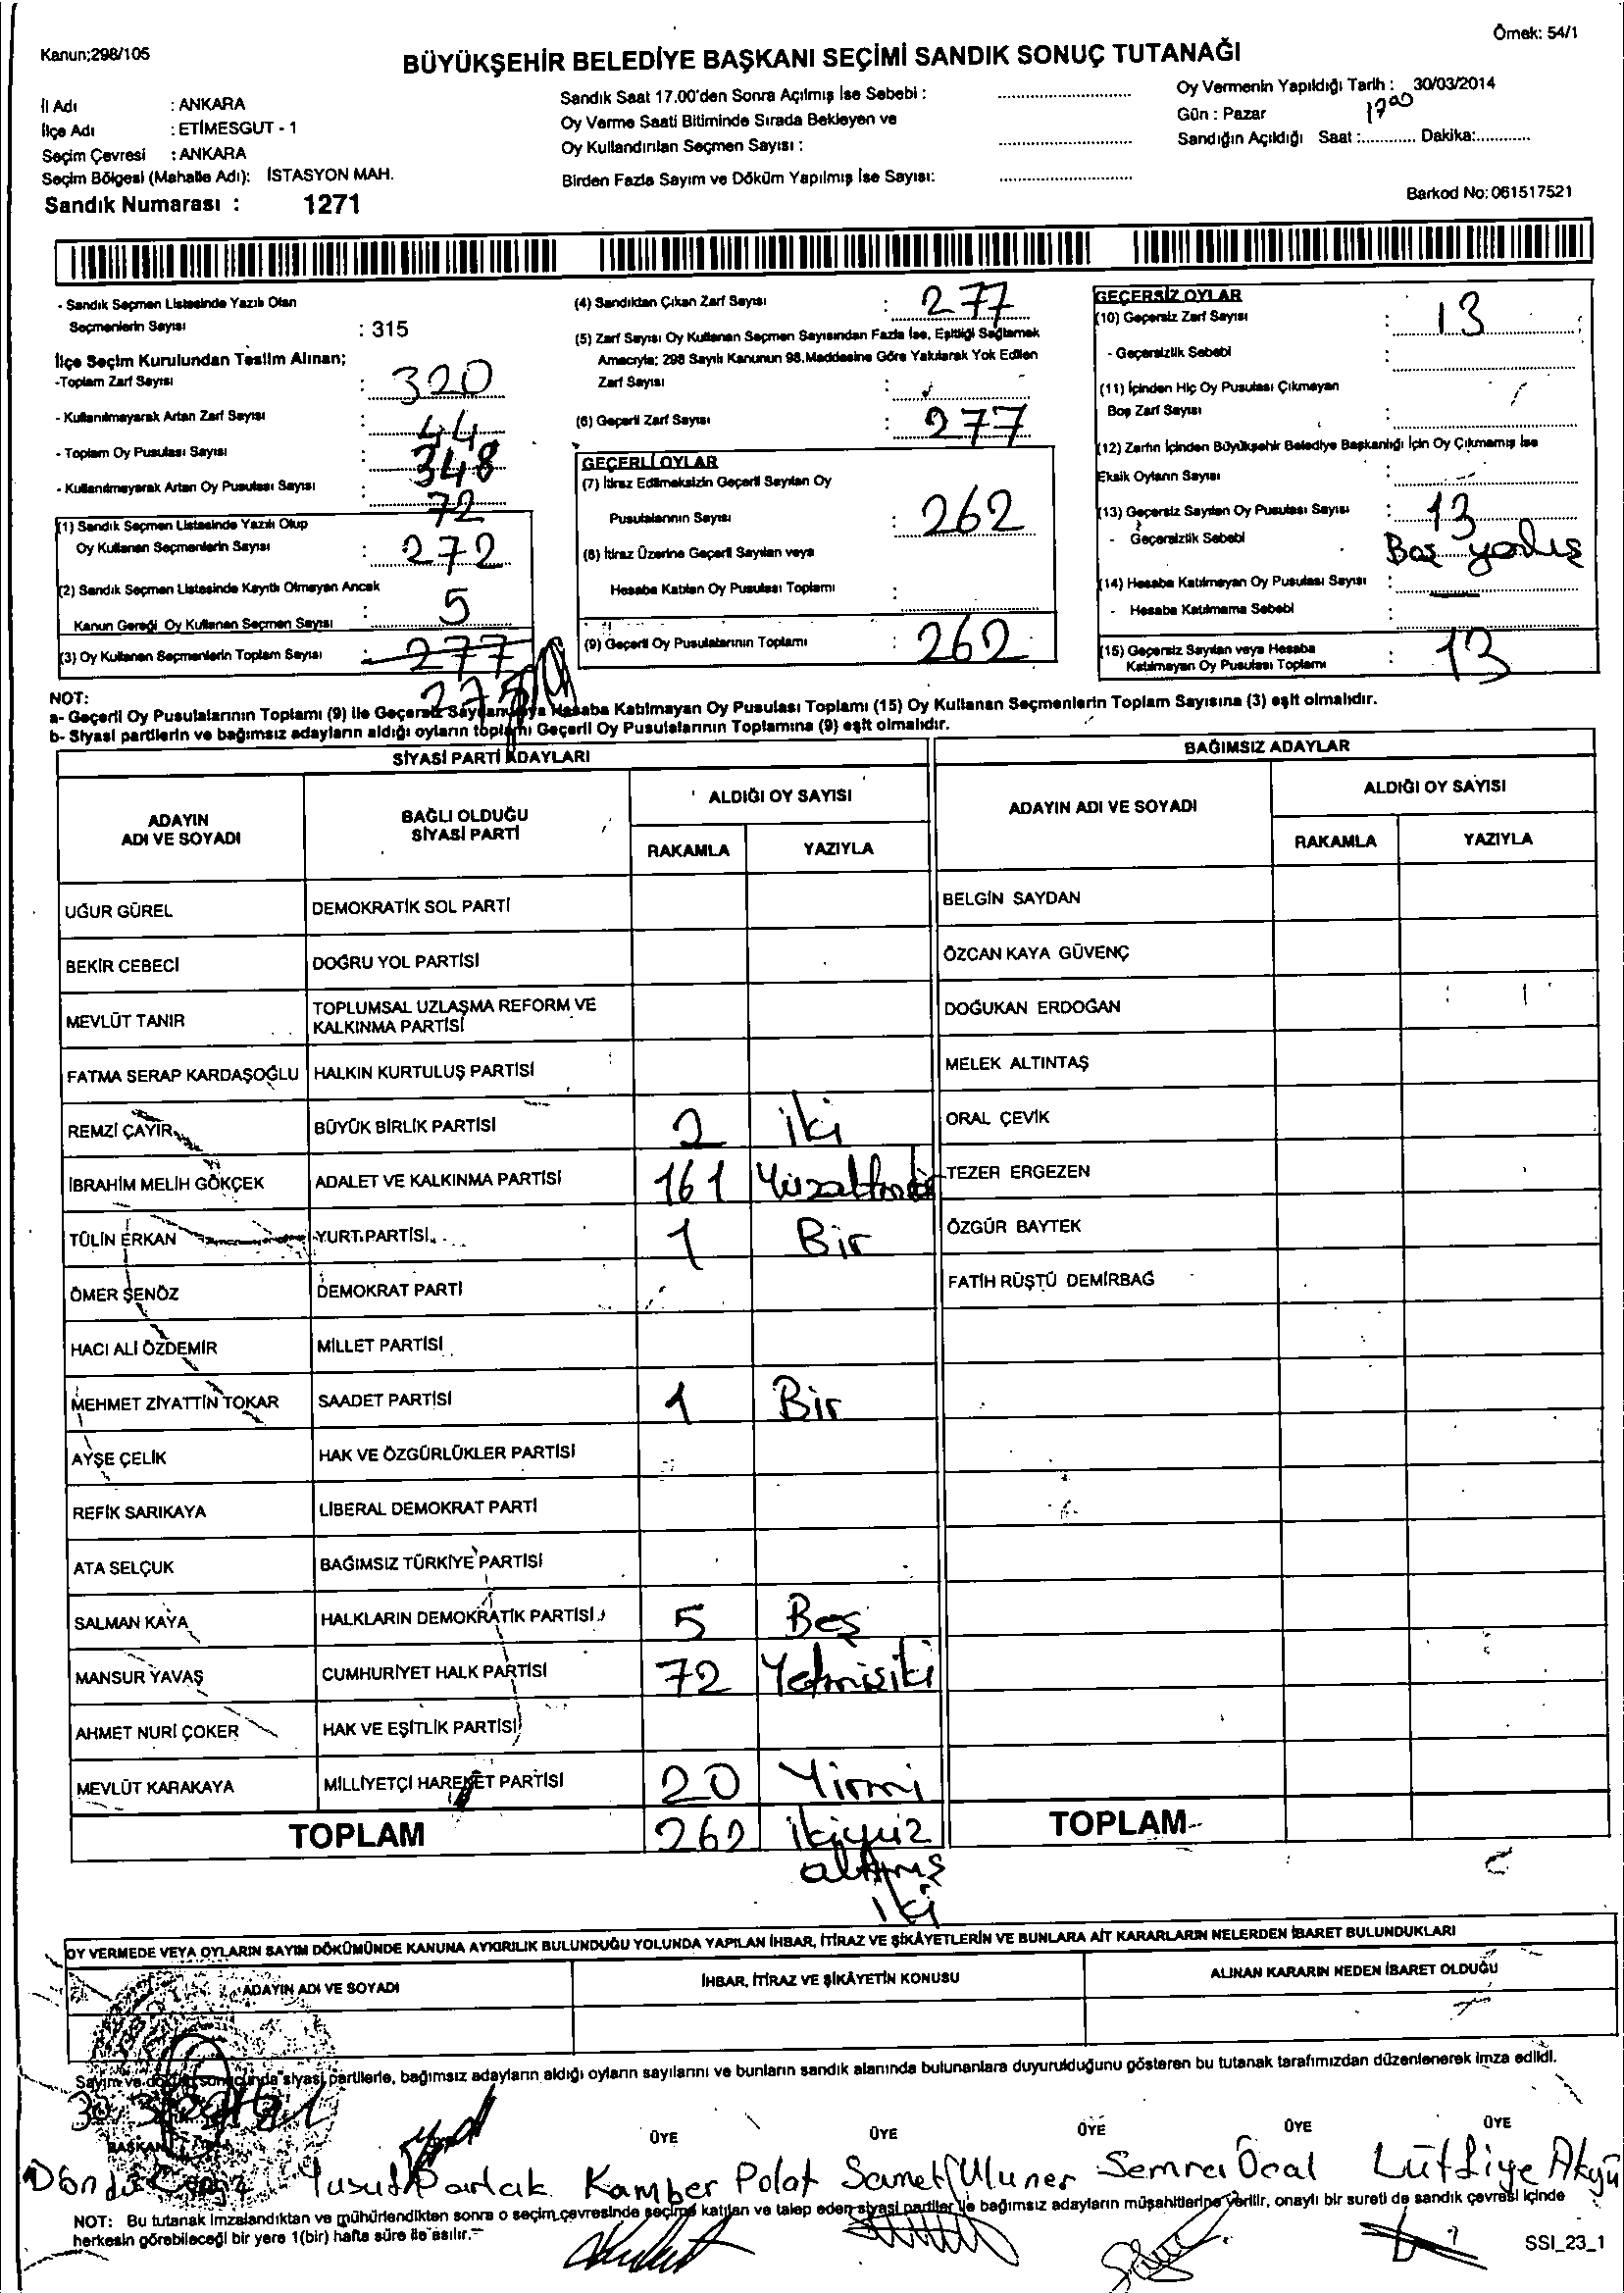 Kanun;298/105
Örnek: 54/1
BÜYÜKŞEHİR BELEDİYE BAŞKANI SEÇİMİ SANDIK SONUÇ TUTANAĞI
İl Adı : ANKARA
İlçe Adı : ETİMESGUT - 1
Seçim Çevresi : ANKARA
Seçim Bölgesi (Mahalle Adı): İSTASYON MAH.
Sandık Numarası : 1271
Sandık Saat 17.00'den Sonra Açılmış İse Sebebi :
Oy Verme Saati Bitiminde Sırada Bekleyen ve
Oy Kullandırılan Seçmen Sayısı :
Birden Fazla Sayım ve Döküm Yapılmış İse Sayısı:
Oy Vermenin Yapıldığı Tarih : 30/03/2014
Gün : Pazar
1700
Sandığın Açıldığı Saat :............ Dakika:............
Barkod No: 061517521
- Sandık Seçmen Listesinde Yazılı Olan
Seçmenlerin Sayısı : 315
İlçe Seçim Kurulundan Teslim Alınan;
-Toplam Zarf Sayısı : 320
- Kullanılmayarak Artan Zarf Sayısı : 44
- Toplam Oy Pusulası Sayısı : 348
- Kullanılmayarak Artan Oy Pusulası Sayısı : 72
(1) Sandık Seçmen Listesinde Yazılı Olup
Oy Kullanan Seçmenlerin Sayısı : 272
(2) Sandık Seçmen Listesinde Kayıtlı Olmayan Ancak
Kanun Gereği Oy Kullanan Seçmen Sayısı : 5
(3) Oy Kullanan Seçmenlerin Toplam Sayısı : 277
275
(4) Sandıktan Çıkan Zarf Sayısı : 277
(5) Zarf Sayısı Oy Kullanan Seçmen Sayısından Fazla İse, Eşitliği Sağlamak
Amacıyla; 298 Sayılı Kanunun 98.Maddesine Göre Yakılarak Yok Edilen
Zarf Sayısı :
(6) Geçerli Zarf Sayısı : 277
GEÇERLİ OYLAR
(7) İtiraz Edilmeksizin Geçerli Sayılan Oy
Pusulalarının Sayısı : 262
(8) İtiraz Üzerine Geçerli Sayılan veya
Hesaba Katılan Oy Pusulası Toplamı :
(9) Geçerli Oy Pusulalarının Toplamı : 262
GEÇERSİZ OYLAR
(10) Geçersiz Zarf Sayısı : 13
- Geçersizlik Sebebi :
(11) İçinden Hiç Oy Pusulası Çıkmayan
Boş Zarf Sayısı :
(12) Zarfın İçinden Büyükşehir Belediye Başkanlığı İçin Oy Çıkmamış İse
Eksik Oyların Sayısı :
(13) Geçersiz Sayılan Oy Pusulası Sayısı : 13
- Geçersizlik Sebebi Boş yanlış
(14) Hesaba Katılmayan Oy Pusulası Sayısı :
- Hesaba Katılmama Sebebi :
(15) Geçersiz Sayılan veya Hesaba
Katılmayan Oy Pusulası Toplamı : 13
NOT:
a- Geçerli Oy Pusulalarının Toplamı (9) ile Geçersiz Sayılan veya Hesaba Katılmayan Oy Pusulası Toplamı (15) Oy Kullanan Seçmenlerin Toplam Sayısına (3) eşit olmalıdır.
b- Siyasi partilerin ve bağımsız adayların aldığı oyların toplamı Geçerli Oy Pusulalarının Toplamına (9) eşit olmalıdır.
SİYASİ PARTİ ADAYLARI
BAĞIMSIZ ADAYLAR
ADAYIN
ADI VE SOYADI
BAĞLI OLDUĞU
SİYASİ PARTİ
ALDIĞI OY SAYISI
RAKAMLA YAZIYLA
ADAYIN ADI VE SOYADI
ALDIĞI OY SAYISI
RAKAMLA YAZIYLA
UĞUR GÜREL DEMOKRATİK SOL PARTİ BELGİN SAYDAN
BEKİR CEBECİ DOĞRU YOL PARTİSİ ÖZCAN KAYA GÜVENÇ
MEVLÜT TANIR TOPLUMSAL UZLAŞMA REFORM VE
KALKINMA PARTİSİ DOĞUKAN ERDOĞAN
FATMA SERAP KARDAŞOĞLU HALKIN KURTULUŞ PARTİSİ MELEK ALTINTAŞ
REMZİ ÇAYIR BÜYÜK BİRLİK PARTİSİ 2 iki ORAL ÇEVİK
İBRAHİM MELİH GÖKÇEK ADALET VE KALKINMA PARTİSİ 161 Yüzaltmışbir TEZER ERGEZEN
TÜLİN ERKAN YURT PARTİSİ 1 Bir ÖZGÜR BAYTEK
ÖMER ŞENÖZ DEMOKRAT PARTİ FATİH RÜŞTÜ DEMİRBAĞ
HACI ALİ ÖZDEMİR MİLLET PARTİSİ
MEHMET ZİYATTİN TOKAR SAADET PARTİSİ 1 Bir
AYŞE ÇELİK HAK VE ÖZGÜRLÜKLER PARTİSİ
REFİK SARIKAYA LİBERAL DEMOKRAT PARTİ
ATA SELÇUK BAĞIMSIZ TÜRKİYE PARTİSİ
SALMAN KAYA HALKLARIN DEMOKRATİK PARTİSİ 5 Beş
MANSUR YAVAŞ CUMHURİYET HALK PARTİSİ 72 Yetmişiki
AHMET NURİ ÇOKER HAK VE EŞİTLİK PARTİSİ
MEVLÜT KARAKAYA MİLLİYETÇİ HAREKET PARTİSİ 20 Yirmi
TOPLAM 262 ikiyüz
altmış
iki
TOPLAM
OY VERMEDE VEYA OYLARIN SAYIM DÖKÜMÜNDE KANUNA AYKIRILIK BULUNDUĞU YOLUNDA YAPILAN İHBAR, İTİRAZ VE ŞİKÂYETLERİN VE BUNLARA AİT KARARLARIN NELERDEN İBARET BULUNDUKLARI
ADAYIN ADI VE SOYADI İHBAR, İTİRAZ VE ŞİKÂYETİN KONUSU ALINAN KARARIN NEDEN İBARET OLDUĞU
Sayım ve döküm sonucunda siyasi partilerle, bağımsız adayların aldığı oyların sayılarını ve bunların sandık alanında bulunanlara duyurulduğunu gösteren bu tutanak tarafımızdan düzenlenerek imza edildi.
BAŞKAN ÜYE ÜYE ÜYE ÜYE ÜYE
Yusuf Parlak Kamber Polat Samet Uluner Semra Öcal Lütfiye Akgü
NOT: Bu tutanak imzalandıktan ve mühürlendikten sonra o seçim çevresinde seçime katılan ve talep eden siyasi partiler ile bağımsız adayların müşahitlerine verilir, onaylı bir sureti de sandık çevresi içinde
herkesin görebileceği bir yere 1(bir) hafta süre ile asılır.
SSI_23_1